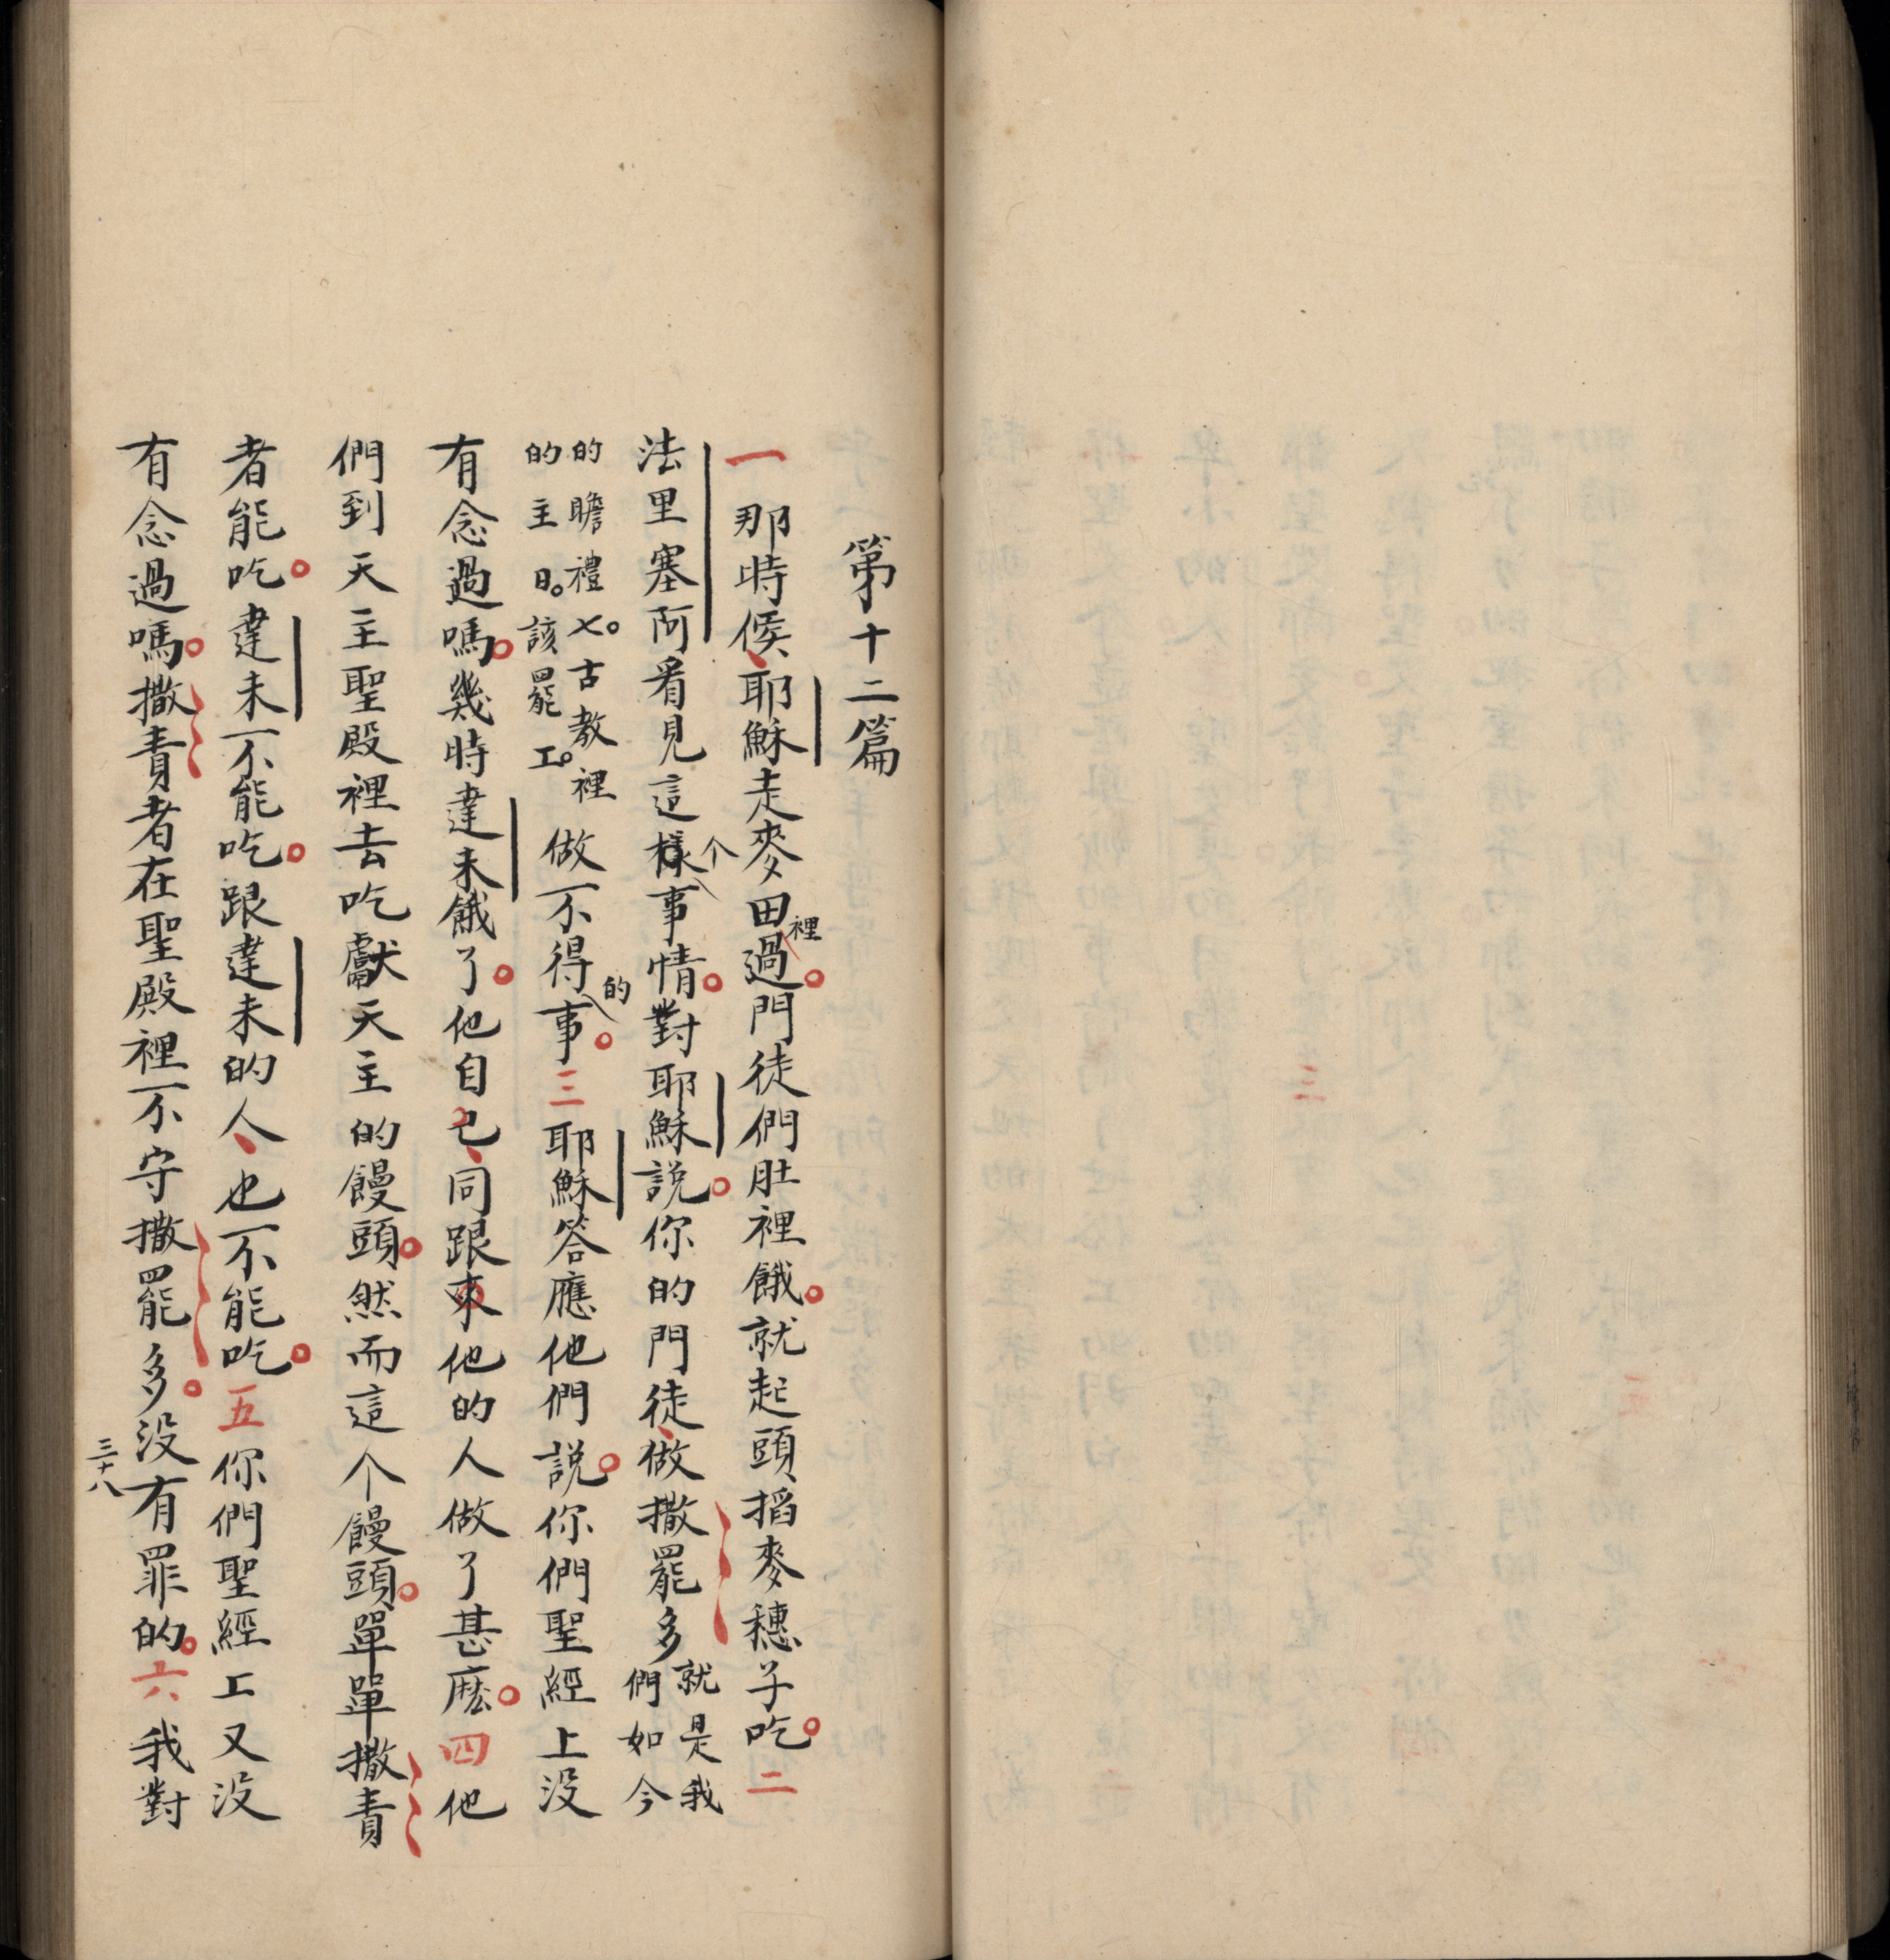 第十二篇
一那時候耶穌走麥田裡過。門徒們肚裡餓。就起頭搯麥穗子吃。二
法里塞阿看見這樣个事情。對耶穌說。你的門徒做撒罷多就是我們如今
的瞻禮七。古教裡的主日。該罷工。做不得的事。三耶穌答應他們說。你們聖經上没
有念過嗎。幾時達未餓了。他自己同跟來他的人做了甚麽。四他
們到天主聖殿裡去吃獻天主的饅頭。然而這个饅頭。單單撒責
者能吃。達未不能吃。跟達未的人也不能吃。五你們聖經上又没
有念過嗎。撒責者在聖殿裡不守撒罷多。没有罪的。六我對
三十八